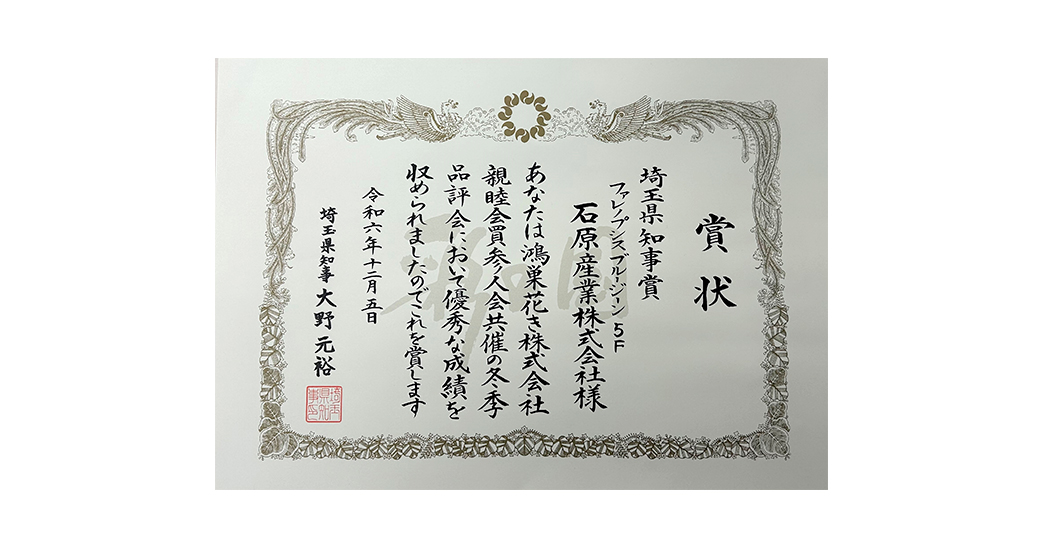 賞状
埼玉県知事賞
ファレノプシスブルージーン 5F
石原産業株式会社様
あなたは鴻巣花き株式会社
親睦会買参人会共催の冬季
品評会において優秀な成績を
収められましたのでこれを賞します
令和六年十二月五日
埼玉県知事 大野元裕